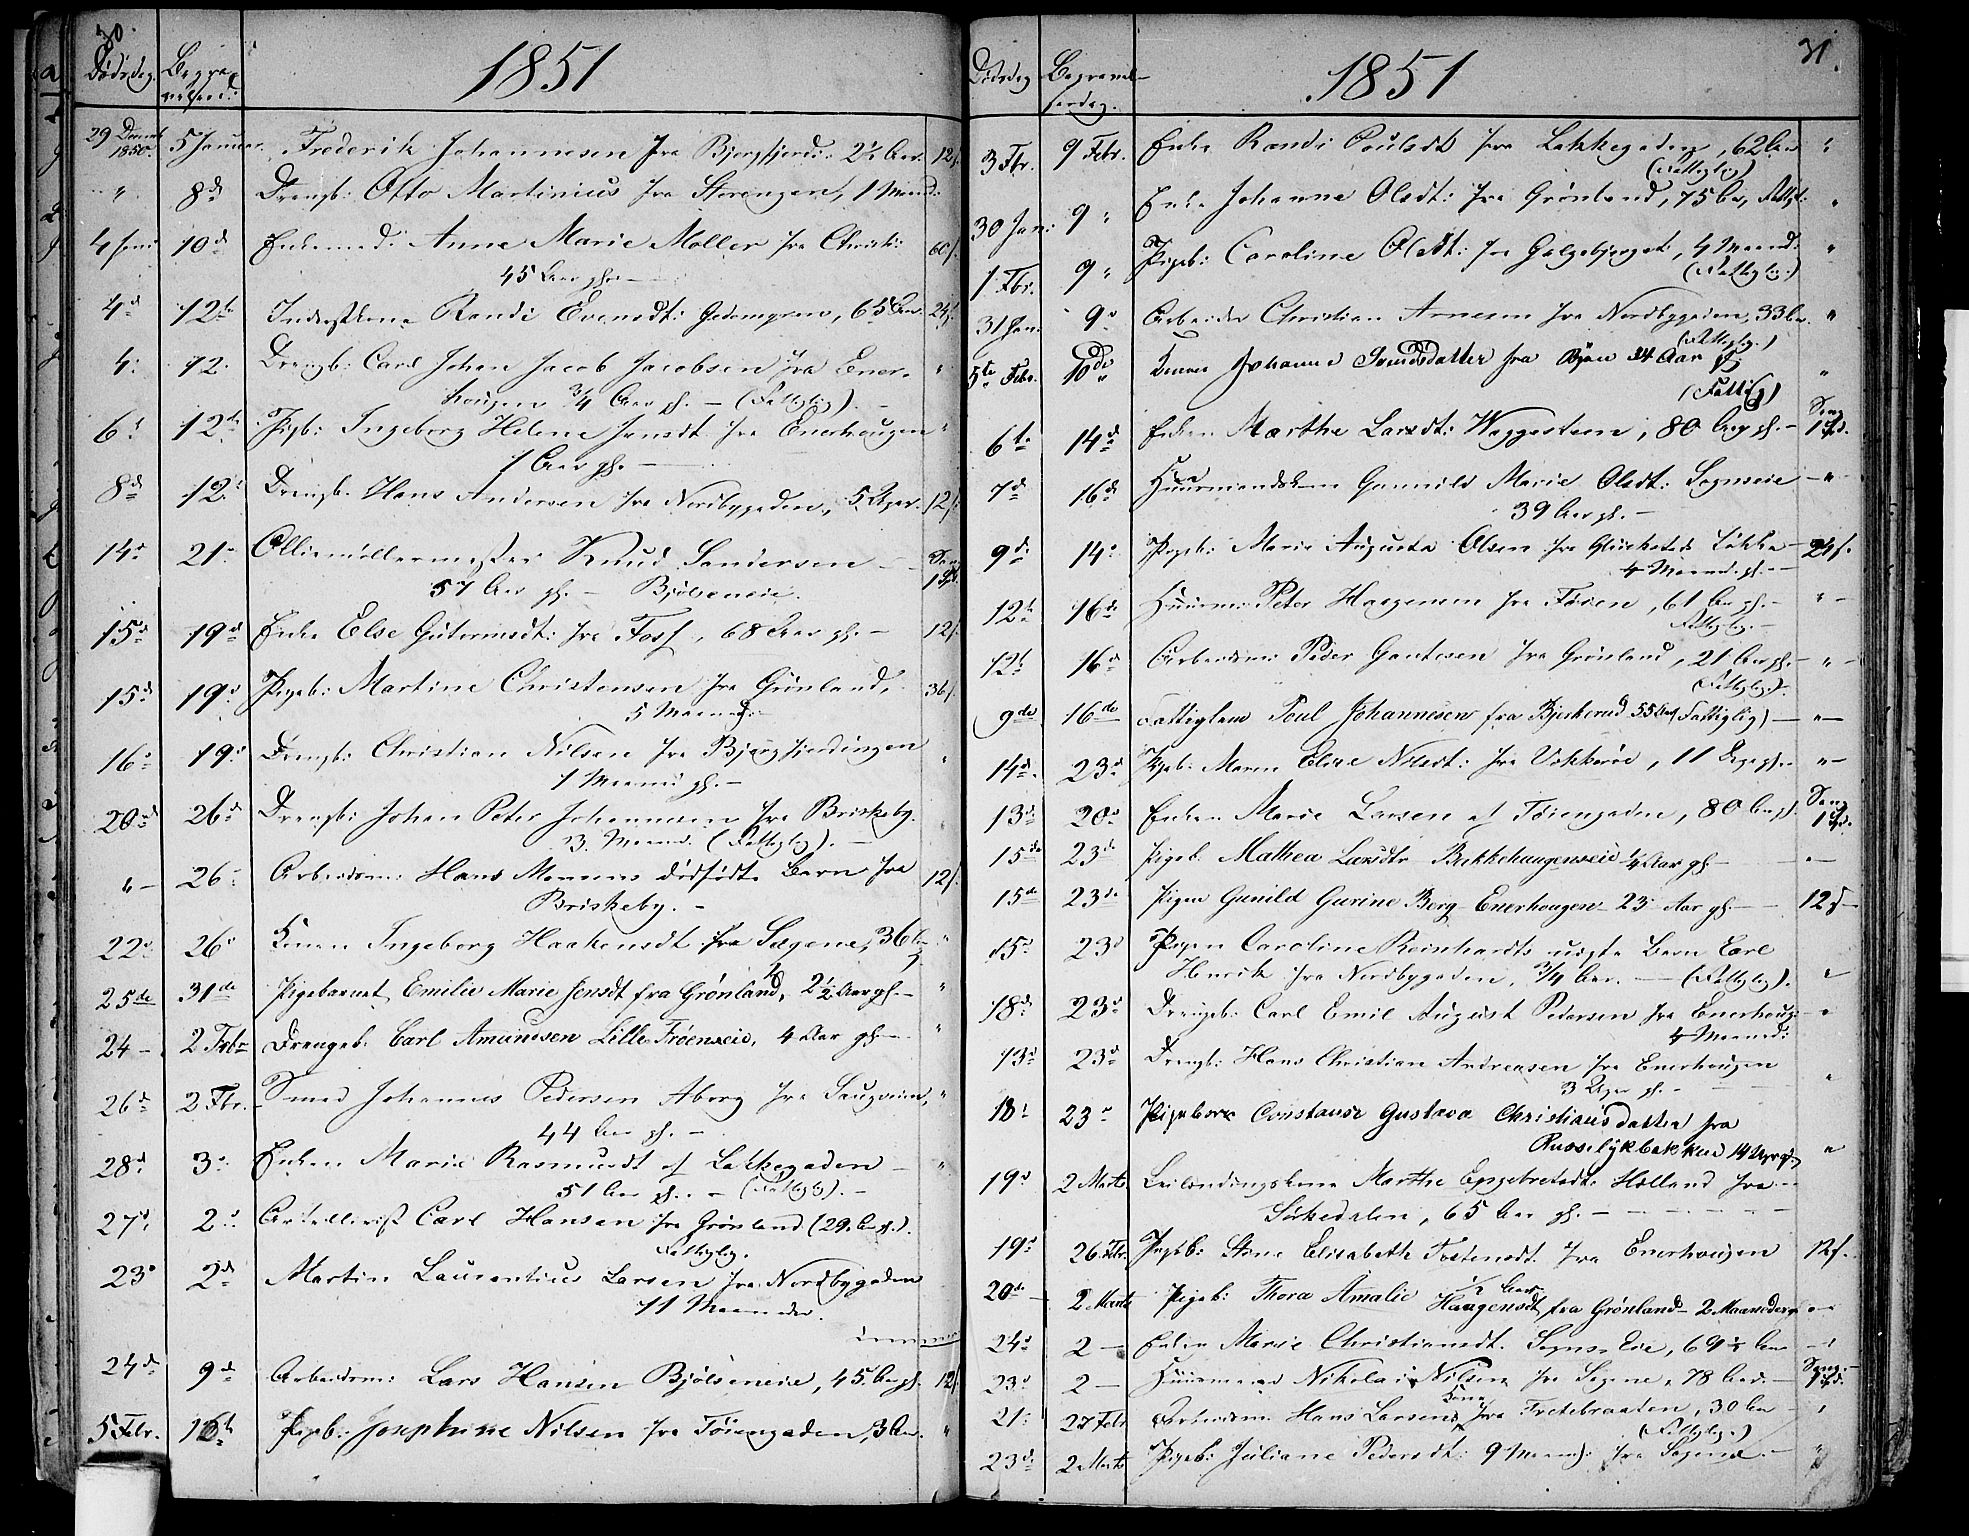 30.
Dødsdag. Begra-
velsesd:
1851
29 Decemb 1850. 5 Januar. Frederik Johannesen fra Bjergfjerd: 2½ Aar. 12 s.
" 8 d Drengb: Otto Martinius fra Storengen, 1 Maaned:
4 Jani 10 d Enkemad: Anne Marie Møller fra Christi: 60 s.
45 Aar gl. —
4 d 12 te Inderstkone Randi Evensdt: Gedemyren, 65 Aar. 24 s.
4: 12. Drengb: Carl Johan Jacob Jacobsen fra Ener- "
hougen ¾ Aar gl. — (Fattiglig). —
6 t 12 te Pigb: Ingeborg Helene Jensdt fra Enerhougen "
1 Aar gl. —
8 d 12 t Drengb. Hans Andersen fra Nordbygaden, 5 Uger. 12 s.
14 d 21 Oliemøllermester Knud Sandersen — Sang 1 Spd.
57 Aar gl. — Bjølseneie.
15 d 19 d Enke Else Gutormsdt: fra Foss, 68 Aar gl. — 12 s.
15 d 19 d Pigeb: Martine Christensen fra Grønland, 36 s.
5 Maaned:
16 19 Drengb: Christian Nilsen fra Bjergfjerdingen "
1 Maaned gl. —
20 d 26 d Drengb: Johan Peter Johannesen fra Briskeby.
3. Maaned. (Fattiglig). —
" — 26 Arbeidsm: Hans Monsens dødfødte Barn fra 12 s.
Briskeby. —
22 d 26 d Konen Ingeborg Haakensdt fra Sagene, 36 Aar "
25 de 31 de Pigebarnet Emilie Marie Jensdt fra Grønland, 2½ Aar gl. — "
24 — 2 Febr Drengeb. Carl Amundsen Lille Frøenseie, 4 Aar gl — "
26 d 2 Fbr. Smed Johannes Pedersen Aberg fra Saugveien, "
44 Aar gl. —
28 d 3 Enken Marie Rasmusdt af Lakkegaden — "
51 Aar gl. — (Fattiglig). —
27 d 2 d Artillerist Carl Hansen fra Grønland (29 Aar gl.).
Fattiglig.
23 d 2 d Martin Laurentius Larsen fra Nordbygaden
11 Maaneder.
24 d 9 d Arbeidsm: Lars Hansen Bjølseneie, 45 Aar gl. 12 s.
5 Febr. 16 de Pigeb: Josephine Nilsen fra Tøiengaden, 3 Aar. "
31.
Dødsdag Begravel-
sesdag.
1851
3 Fbr. 9 Febr. Enke Randi Poulsdt fra Lakkegaden, 62 Aar "
(Fattiglig)
30 Jan: 9 " Enke Johanne Olsdt: fra Grønland, 75 Aar, Fattigl: "
1 Fbr. 9 " Pigeb: Caroline Olsdt: fra Galgebjerget, 4 Maaned: "
(Fattiglig.)
31 Jan. 9 d Arbeider Christian Arnesen fra Nordbygaden, 33 Aar. "
(Fattiglig.)
5te Febr. 10 de Konen Johanne Svendsdatter fra Byen 34 Aar gl "
(Fattig)
6 te 14 d Enken Marthe Larsdt: Waggesteen, 80 Aar gl. — Sang 1 Spd.
7 d 16 d Huusmandskone Gunnild Marie Olsdt: Sogneeie — " —
39 Aar gl. —
9 d 14 Pigeb: Marie Augusta Olsen fra Glückstads Løkke — 24 s.
4 Maaned. gl. —
12 te 16 de Huusm: Peter Haagensen fra Tøien, 61 Aar gl. — " —
Fattiglig. —
12 te 16 d Arbeidsm: Peder Gautesen fra Grønland, 21 Aar gl. — " —
(Fattiglig.)
9 de 16 de Fattiglem Poul Johannesen fra Bjerkerud 55 Aar (Fattiglig) — " —
14 d. 23 d Pigeb: Maren Eline Nilsdt: fra Vækkerøe, 11 Uger gl. — " —
13 d 20 d Enken Marie Larsen af Tøiengaden, 80 Aar gl. Sang 1 Spd.
15 de 23 de Pigeb. Mathea Larsdtr Bakkehaugenseie ¼ Aar gl — " —
15 de 23 de Pigen Gunild Gurine Berg Enerhougen 23 Aar gl — 12 s —
15 d 23 d Pigen Caroline Reinhardts uægte Barn Carl
Henrik fra Nordbygaden, ¾ Aar. — (Fattiglig). "
18 d 23 d Drengeb: Carl Emil August Pedersen fra Enerhoug: — "
4 Maaned:
13 d 23 d Drengb: Hans Christian Andreasen fra Enerhougen "
3 Uger gl. —
18 d 23 d Pigebarn Constanse Gustava Christiansdatter fra
Russeløkbakken 14 Uger gl. "
19 d 2 Marts. Leilændingskone Marthe Engebretsdt. Holland fra —
Sørkedalen, 65 Aar gl. —
19 d 26 Fbr. Pigeb: Stine Elisabeth Torstensdt. fra Enerhougen 12 s.
½ Aar
20 de 2 Marts Pigeb: Thora Amalie Haagensdt fra Grønland — 2 Maaneder gl " —
24 d 2 — Enken Marie Christiansdt. Sogns Eie, 69½ Aar — "
23 d 2 — Huusmand Nikolai Nilsen fra Sagene, 78 Aar. — Sang 1 Spd.
21: 27 Febr Arbeidsm: Hans Larsens Kone fra Fredebraaten, 30 Aar — "
(Fattiglig.)
23 d 2 Marts Pigeb: Juliane Pedersdt: 9 Maaned: fra Sagene — "